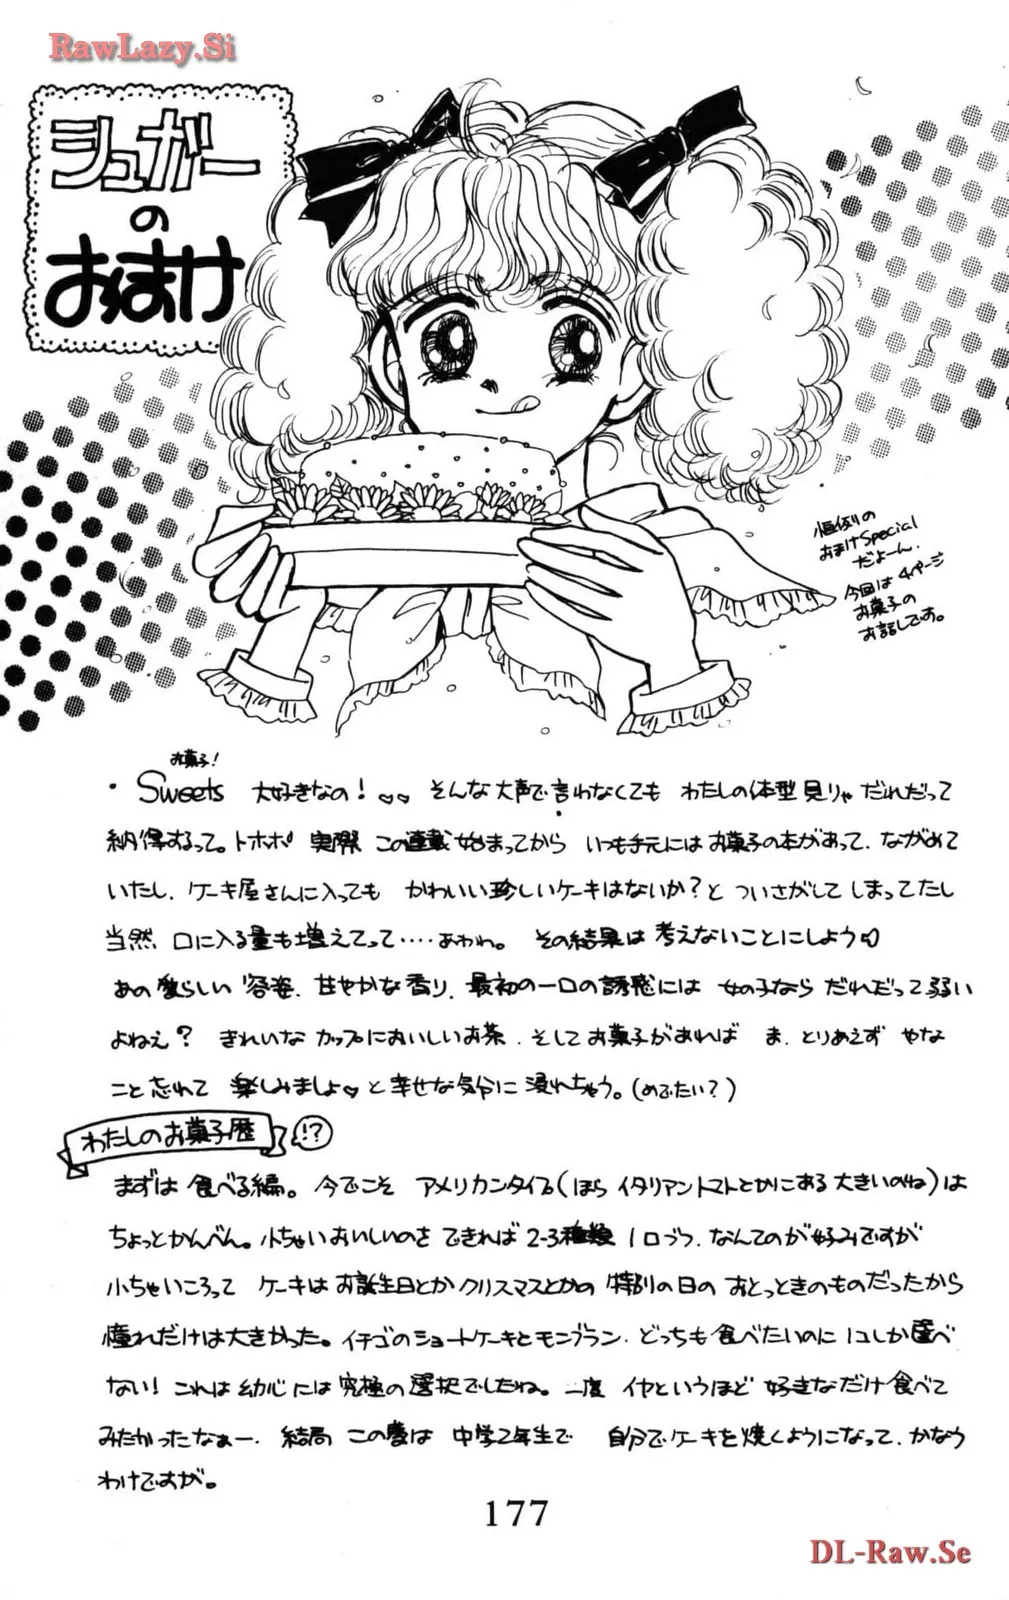 RawLazy.Si
シュガー
の
おまけ
恒例の
おまけSpecial
だよーん.
今回は4ページ
お菓子の
お話しです。
お菓子!
・Sweets 大好きなの!♡♡ そんな大声で言わなくても わたしの体型見りゃだれだって
納得するって。トホホ 実際 この連載始まってから いつも手元にはお菓子の本があって、ながめて
いたし、ケーキ屋さんに入っても かわいい珍しいケーキはないか?と ついさがしてしまってたし
当然 口に入る量も増えてって……あわわ。 その結果は考えないことにしよう♡
あの愛らしい容姿、甘やかな香り、最初の一口の誘惑には 女の子なら だれだって弱い
よねえ? きれいなカップにおいしいお茶、そしてお菓子があれば ま、とりあえず やな
こと忘れて 楽しみましょ♡と幸せな気分に浸れちゃう。(めでたい?)
わたしのお菓子歴 !?
まずは 食べる編。今でこそ アメリカンタイプ(ほら イタリアントマトとかにある大きいのね)は
ちょっとかんべん。小ちゃいおいしいのを できれば 2-3種類 1口づつ、なんてのが好みですが
小ちゃいころって ケーキはお誕生日とかクリスマスとかの 特別の日の おとっときのものだったから
憧れだけは大きかった。イチゴのショートケーキとモンブラン、どっちも食べたいのに 1コしか選べ
ない! これは幼心には究極の選択でしたね。一度 イヤというほど 好きなだけ食べて
みたかったなぁー、結局 この夢は 中学2年生で 自分でケーキを焼くようになって、かなう
わけですが。
177
DL-Raw.Se